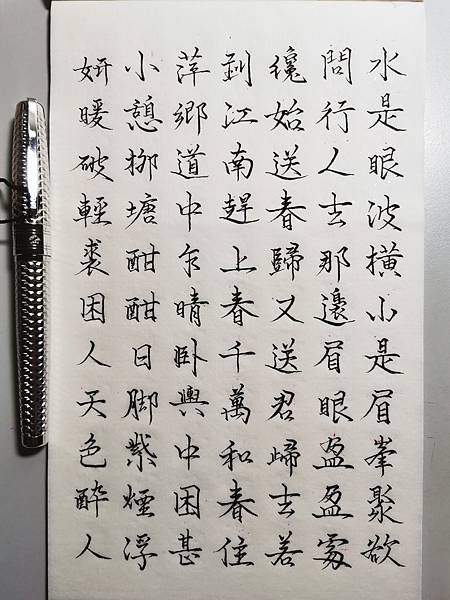 水是眼波橫山是眉峯聚欲
問行人去那邊眉眼盈盈處
纔始送春歸又送君歸去若
到江南趕上春千萬和春住
萍鄉道中乍晴臥輿中困甚
小憩柳塘酣酣日脚紫煙浮
妍暖破輕裘困人天色醉人